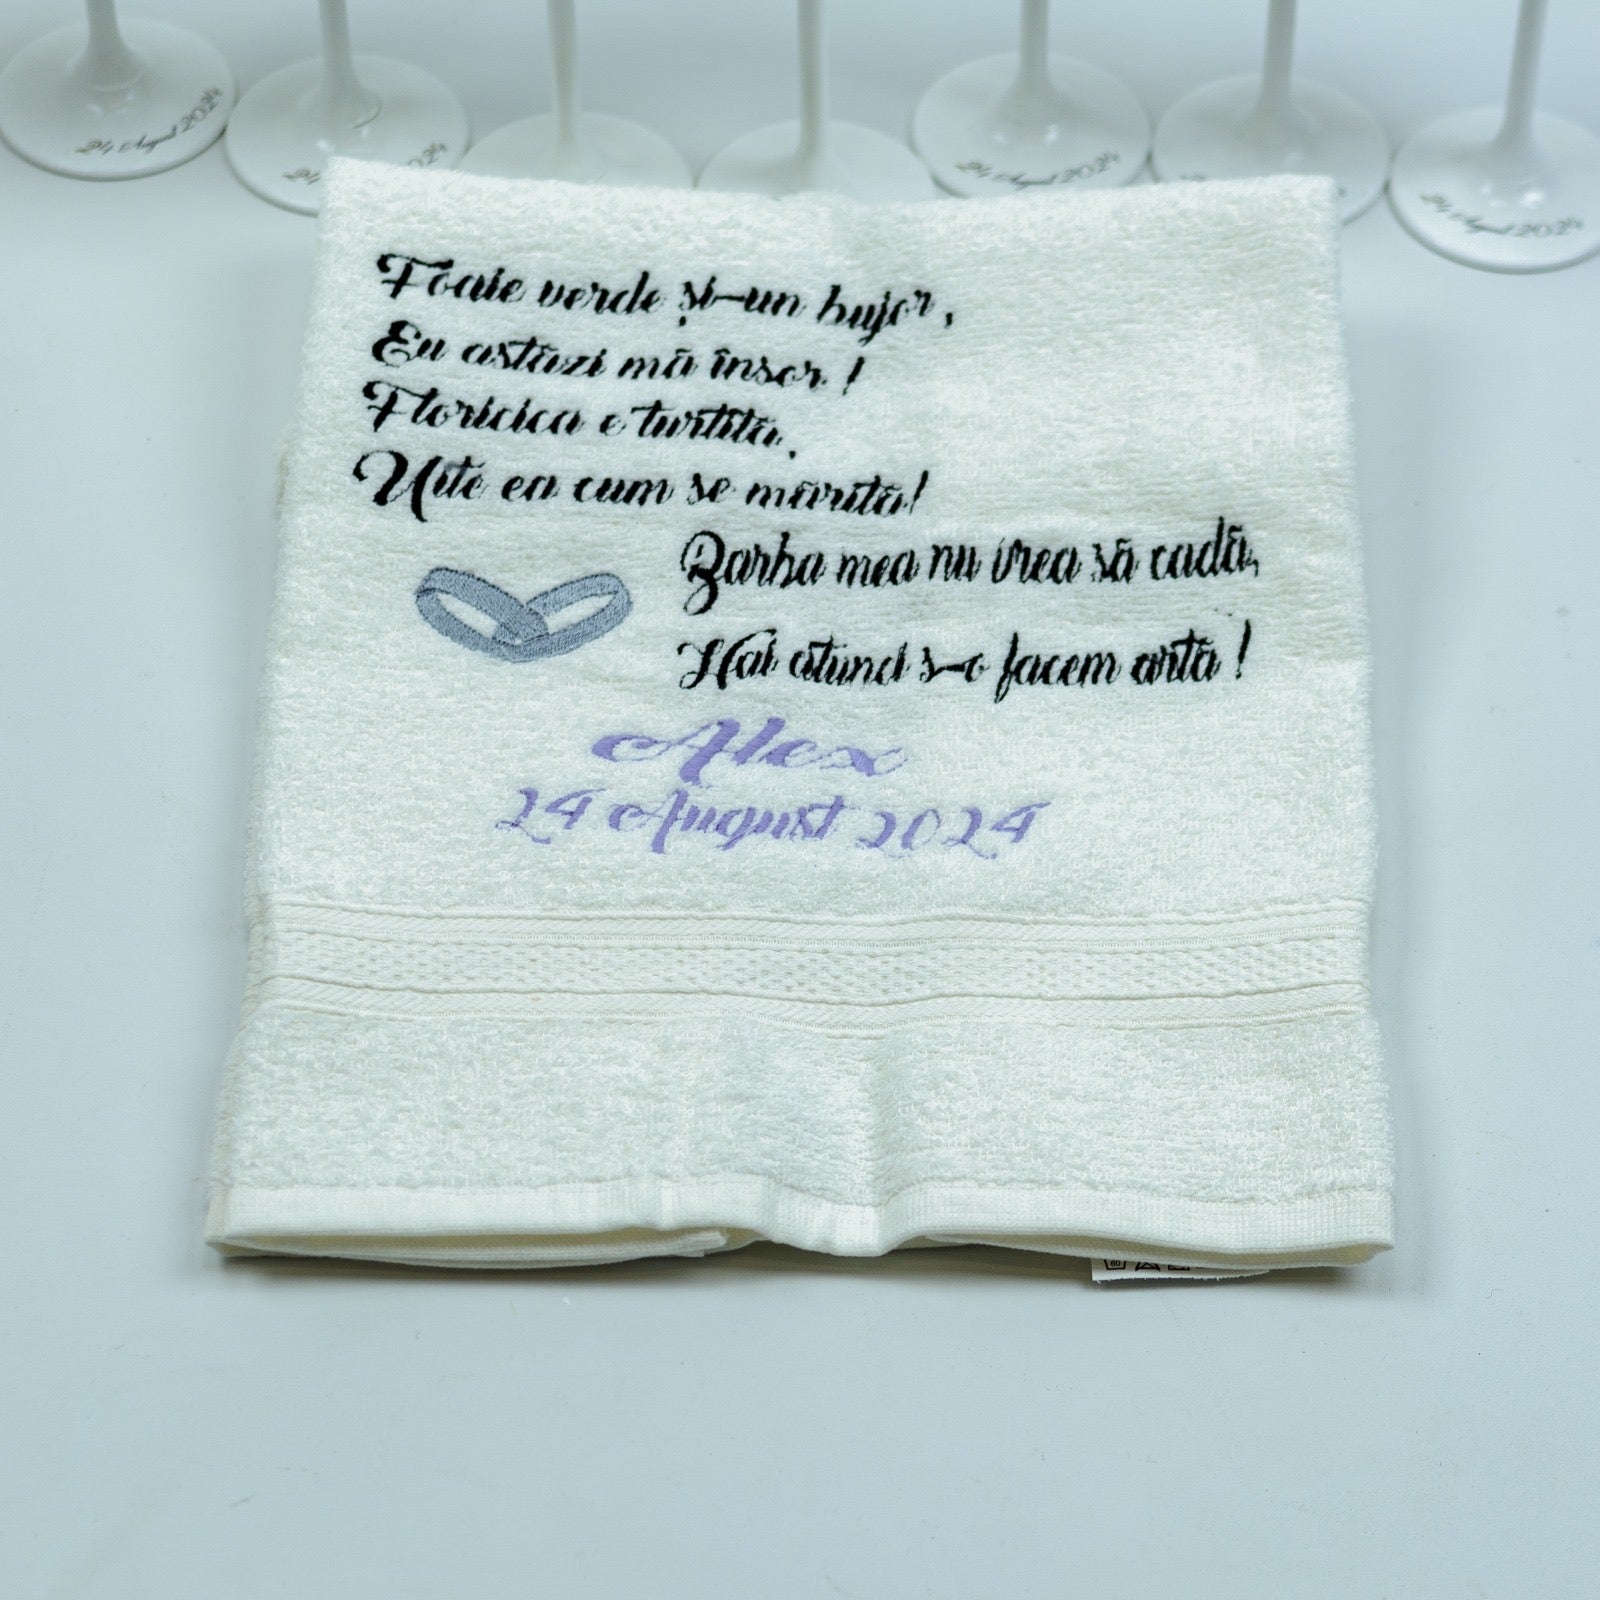 24 August 2024
24
024
24 August 2024
24 August 2024
Foaie verde și-un bujor,
Eu astăzi mă însor!
Floricica e turtită,
Uite ea cum se mărită!
Barba mea nu vrea să cadă,
Hai atunci s-o facem artă!
Alex
24 August 2024
60